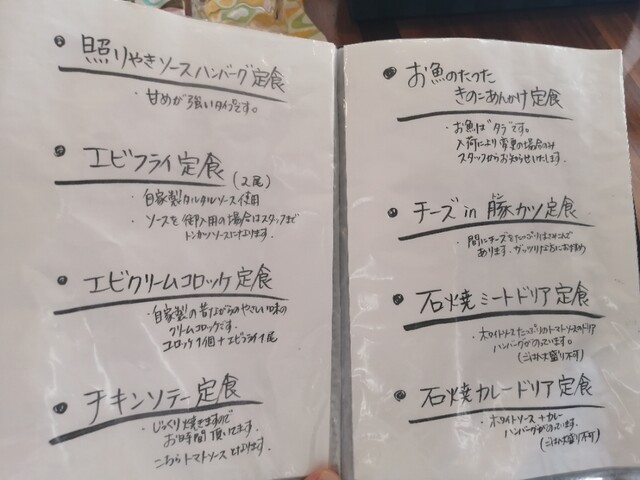 照りやきソースハンバーグ定食
・甘めが強いタイプです。
エビフライ定食 (2尾)
・自家製タルタルソース使用
・ソースを御入用の場合はスタッフまで
トンカツソースになります。
エビクリームコロッケ定食
・自家製の昔ながらのやさしい味の
クリームコロッケです。
コロッケ1個+エビフライ1尾
チキンソテー定食
・じっくり焼きますので
お時間頂いてます。
こちらトマトソースとなります。
お魚のたつた
きのこあんかけ定食
・お魚は"タラ"です。
入荷により変更の場合のみ
スタッフからお知らせいたします。
チーズin豚カツ定食
トン
・間にチーズをたっぷりはさみこんで
あります。ガッツリな方におすすめ
石焼ミートドリア定食
・ホワイトソースたっぷりのトマトソースのドリア
ハンバーグがのています。
(ごはん大盛り不可)
石焼カレードリア定食
・ホワイトソース+カレー
ハンバーグがのています。
(ごはん大盛り不可)